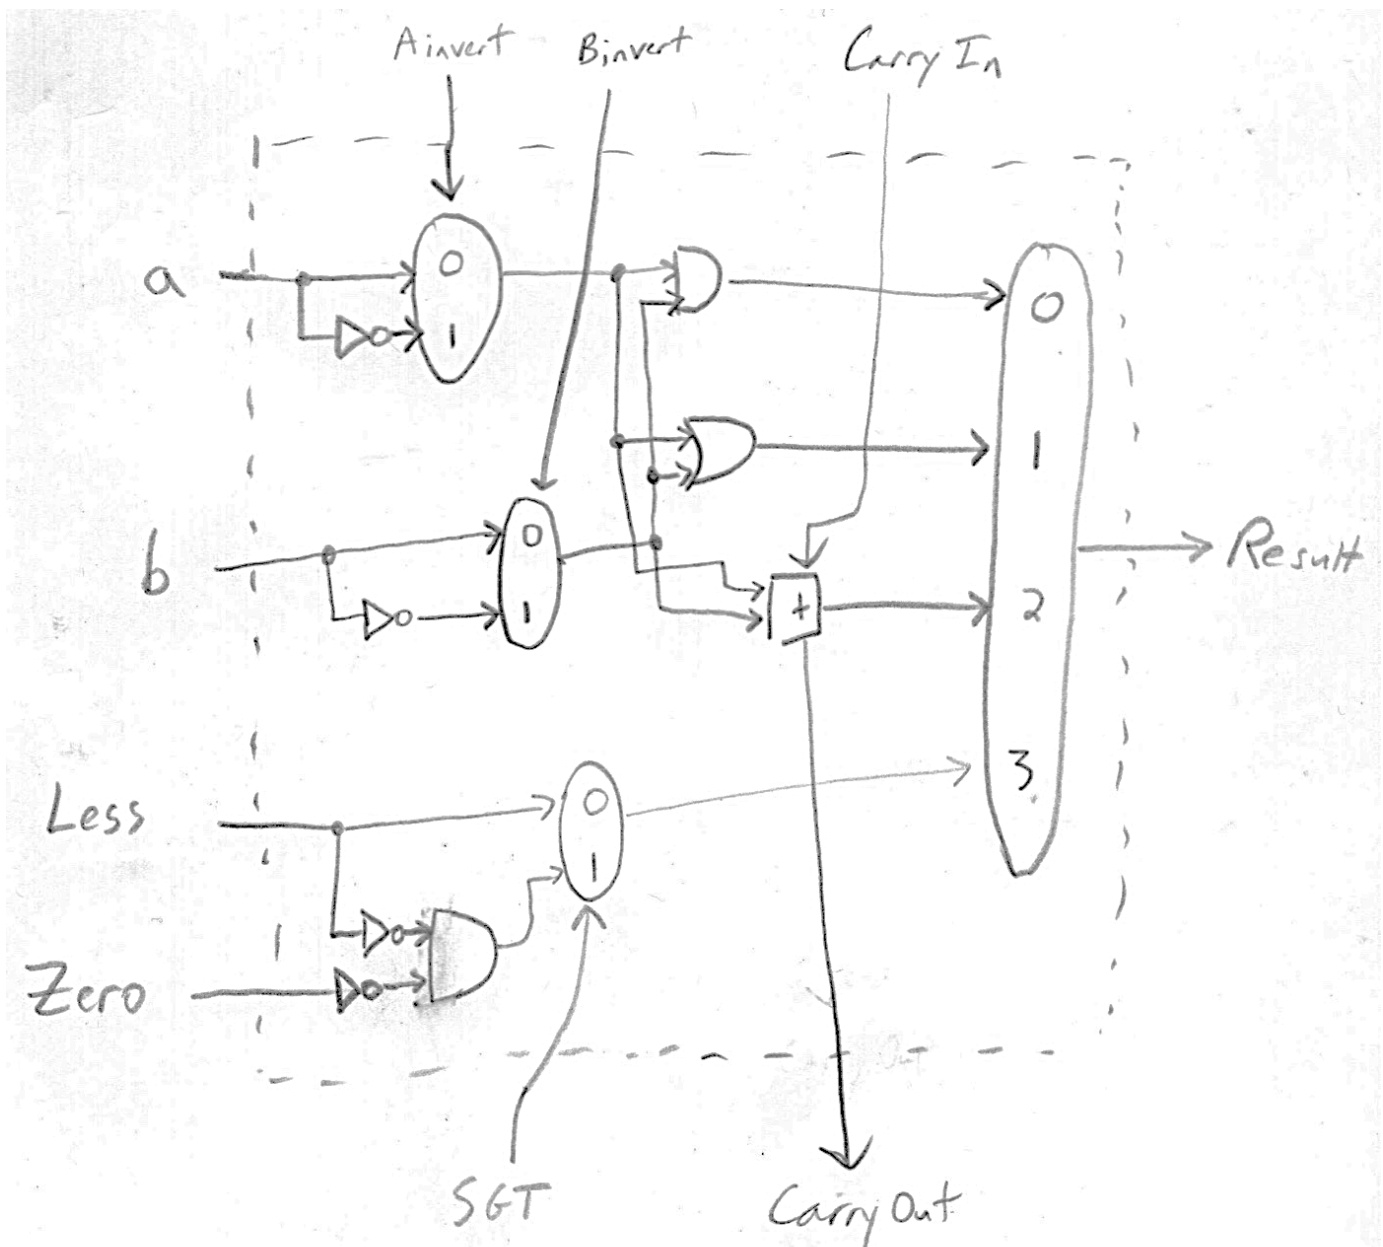 Ainvert
Binvert
Carry In
a
0
1
0
1
b
0
1
2
3
+
Result
Less
0
1
Zero
SGT
Carry Out